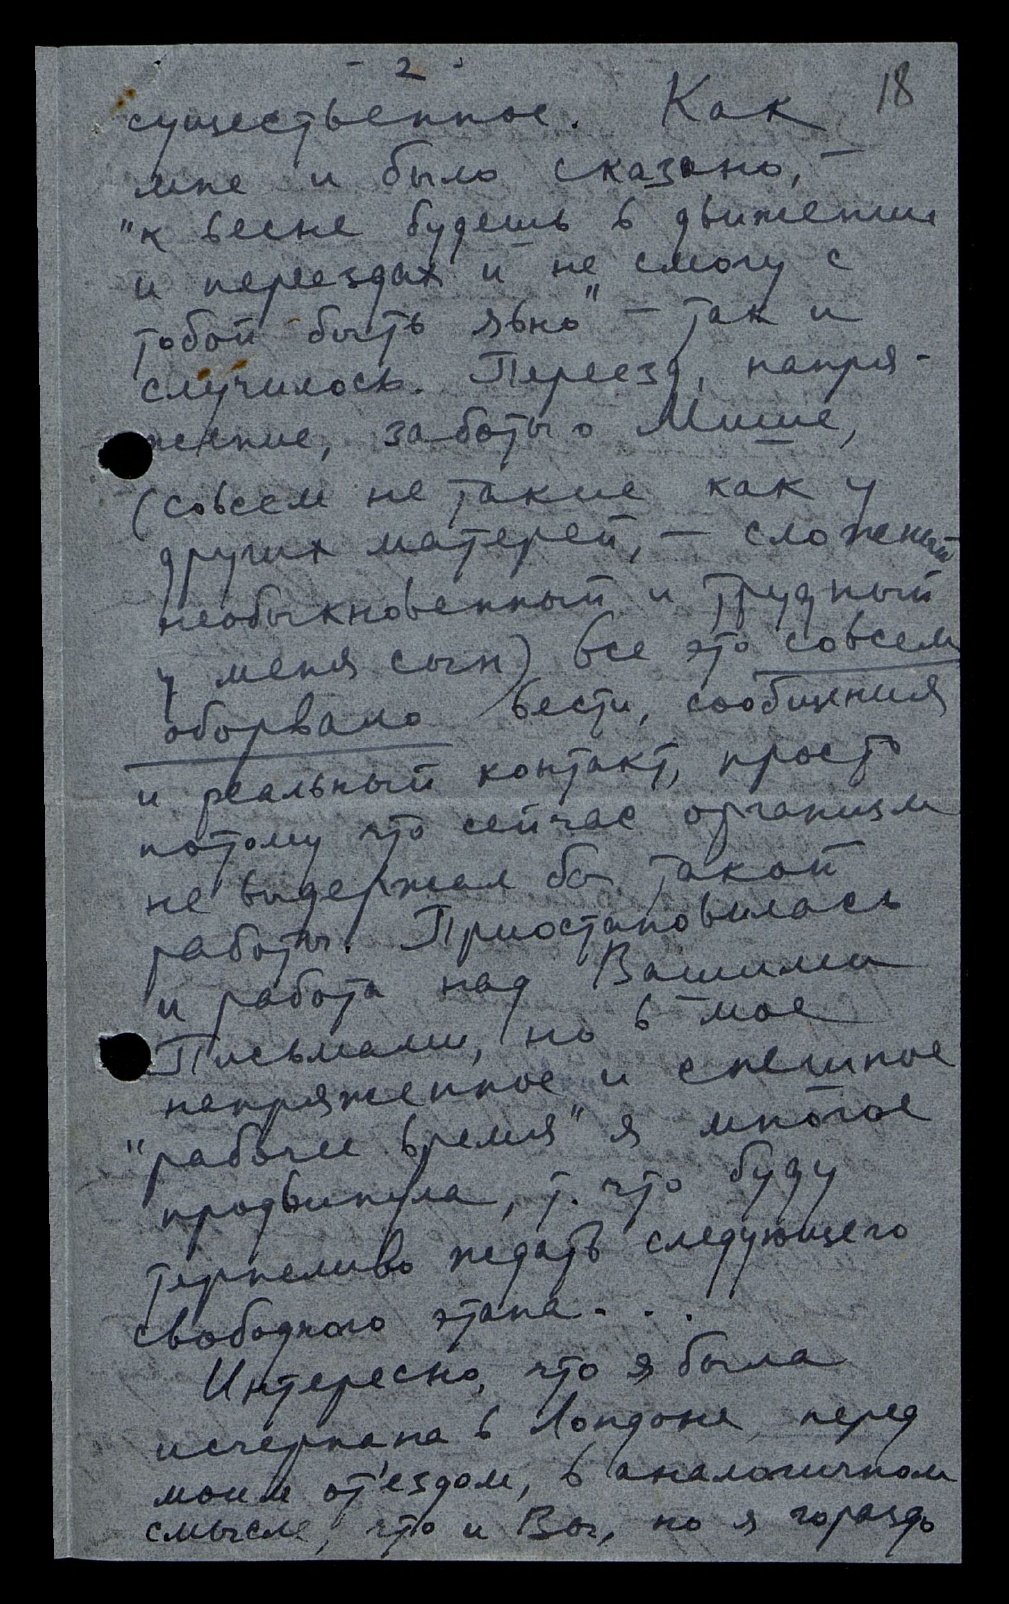 - 2 -
18
существенное. Как
мне и было сказано, –
"к весне будешь в движении
и переездах и не смогу с
тобой быть явно" – так и
случилось. Переезд, напря-
жение, заботы о Мише,
(совсем не такие как у
других матерей, – сложный
необыкновенный и трудный
у меня сын) все это совсем
оборвало вести, сообщения
и реальный контакт, просто
потому что сейчас организм
не выдержал бы такой
работы. Приостановилась
и работа над Вашими
Письмами, но в мое
напряженное и спешное
"рабочее время" я многое
продвинула, т. что буду
терпеливо ждать следующего
свободного этапа...
Интересно, что я была
исчерпана в Лондоне перед
моим от'ездом, в аналогичном
смысле, что и Вы, но я гораздо